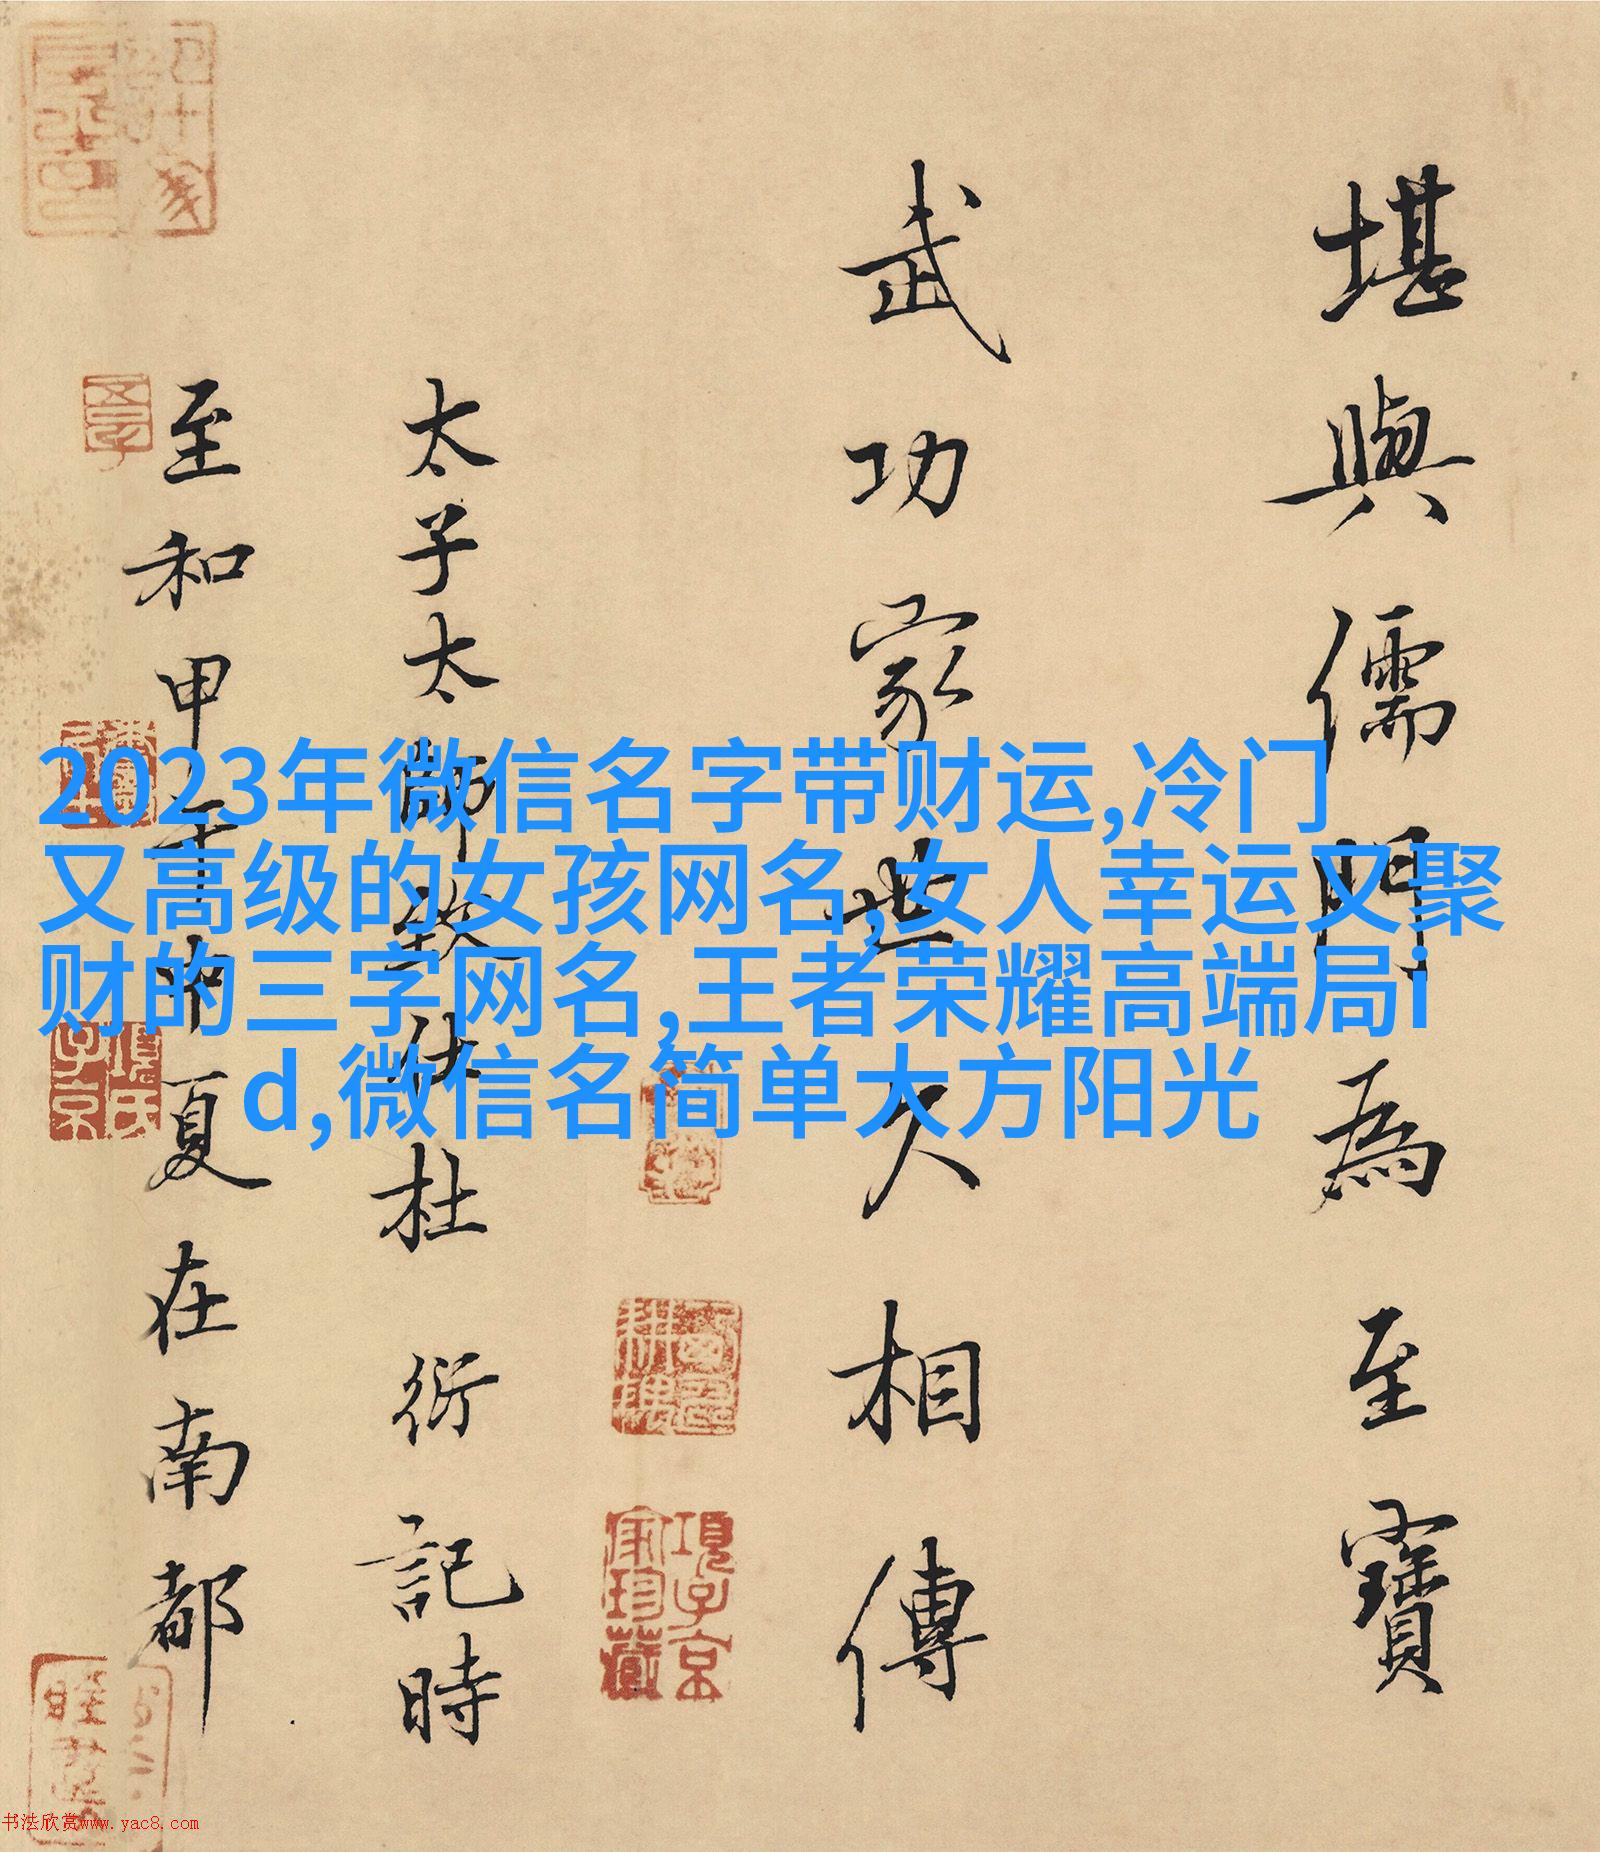 堪與儒門為至寶
武功家世久相傳
太子太師致仕杜衍記時
至和甲午中夏在南都
2023年微信名字带财运,冷门
又高级的女孩网名,女人幸运又聚
财的三字网名,王者荣耀高端局i
d,微信名简单大方阳光
項子京
家珍藏
項氏
子京
书法欣赏www.yac8.com